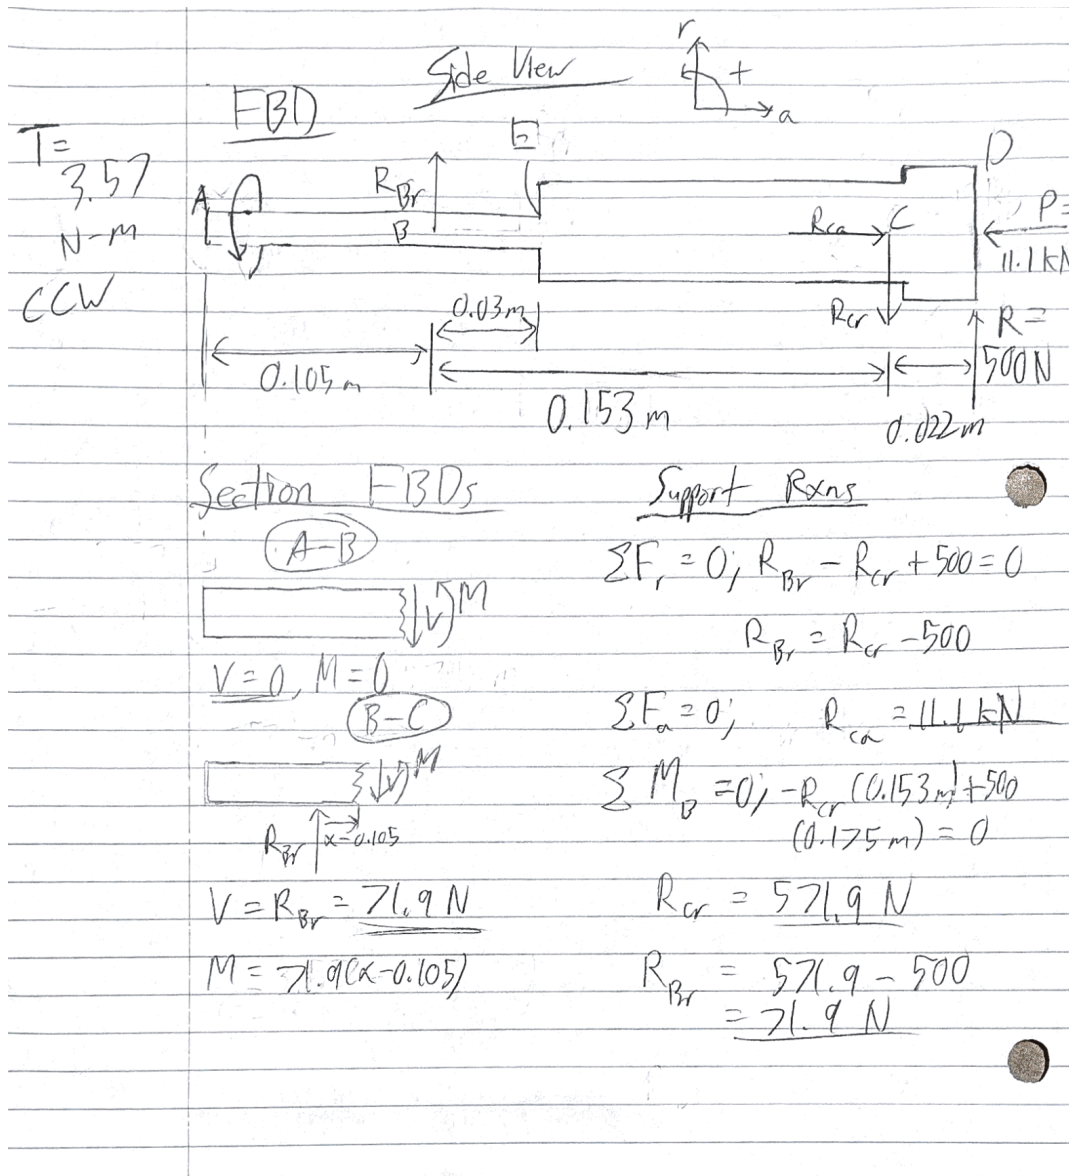 Side View
r
+
a
FBD
T=
3.57
N-m
CCW
A
R_Br
B
E
D
R_ca
C
P=
11.1 kN
R_cr
R=
500 N
0.03m
0.105 m
0.153 m
0.022 m
Section FBDs
A-B
V M
V=0, M=0
B-C
V M
R_Br x-0.105
V = R_Br = 71.9 N
M = 71.9(x-0.105)
Support Rxns
ΣF_r = 0; R_Br - R_cr + 500 = 0
R_Br = R_cr - 500
ΣF_a = 0; R_ca = 11.1 kN
ΣM_B = 0; -R_cr (0.153 m) + 500
(0.175 m) = 0
R_cr = 571.9 N
R_Br = 571.9 - 500
= 71.9 N